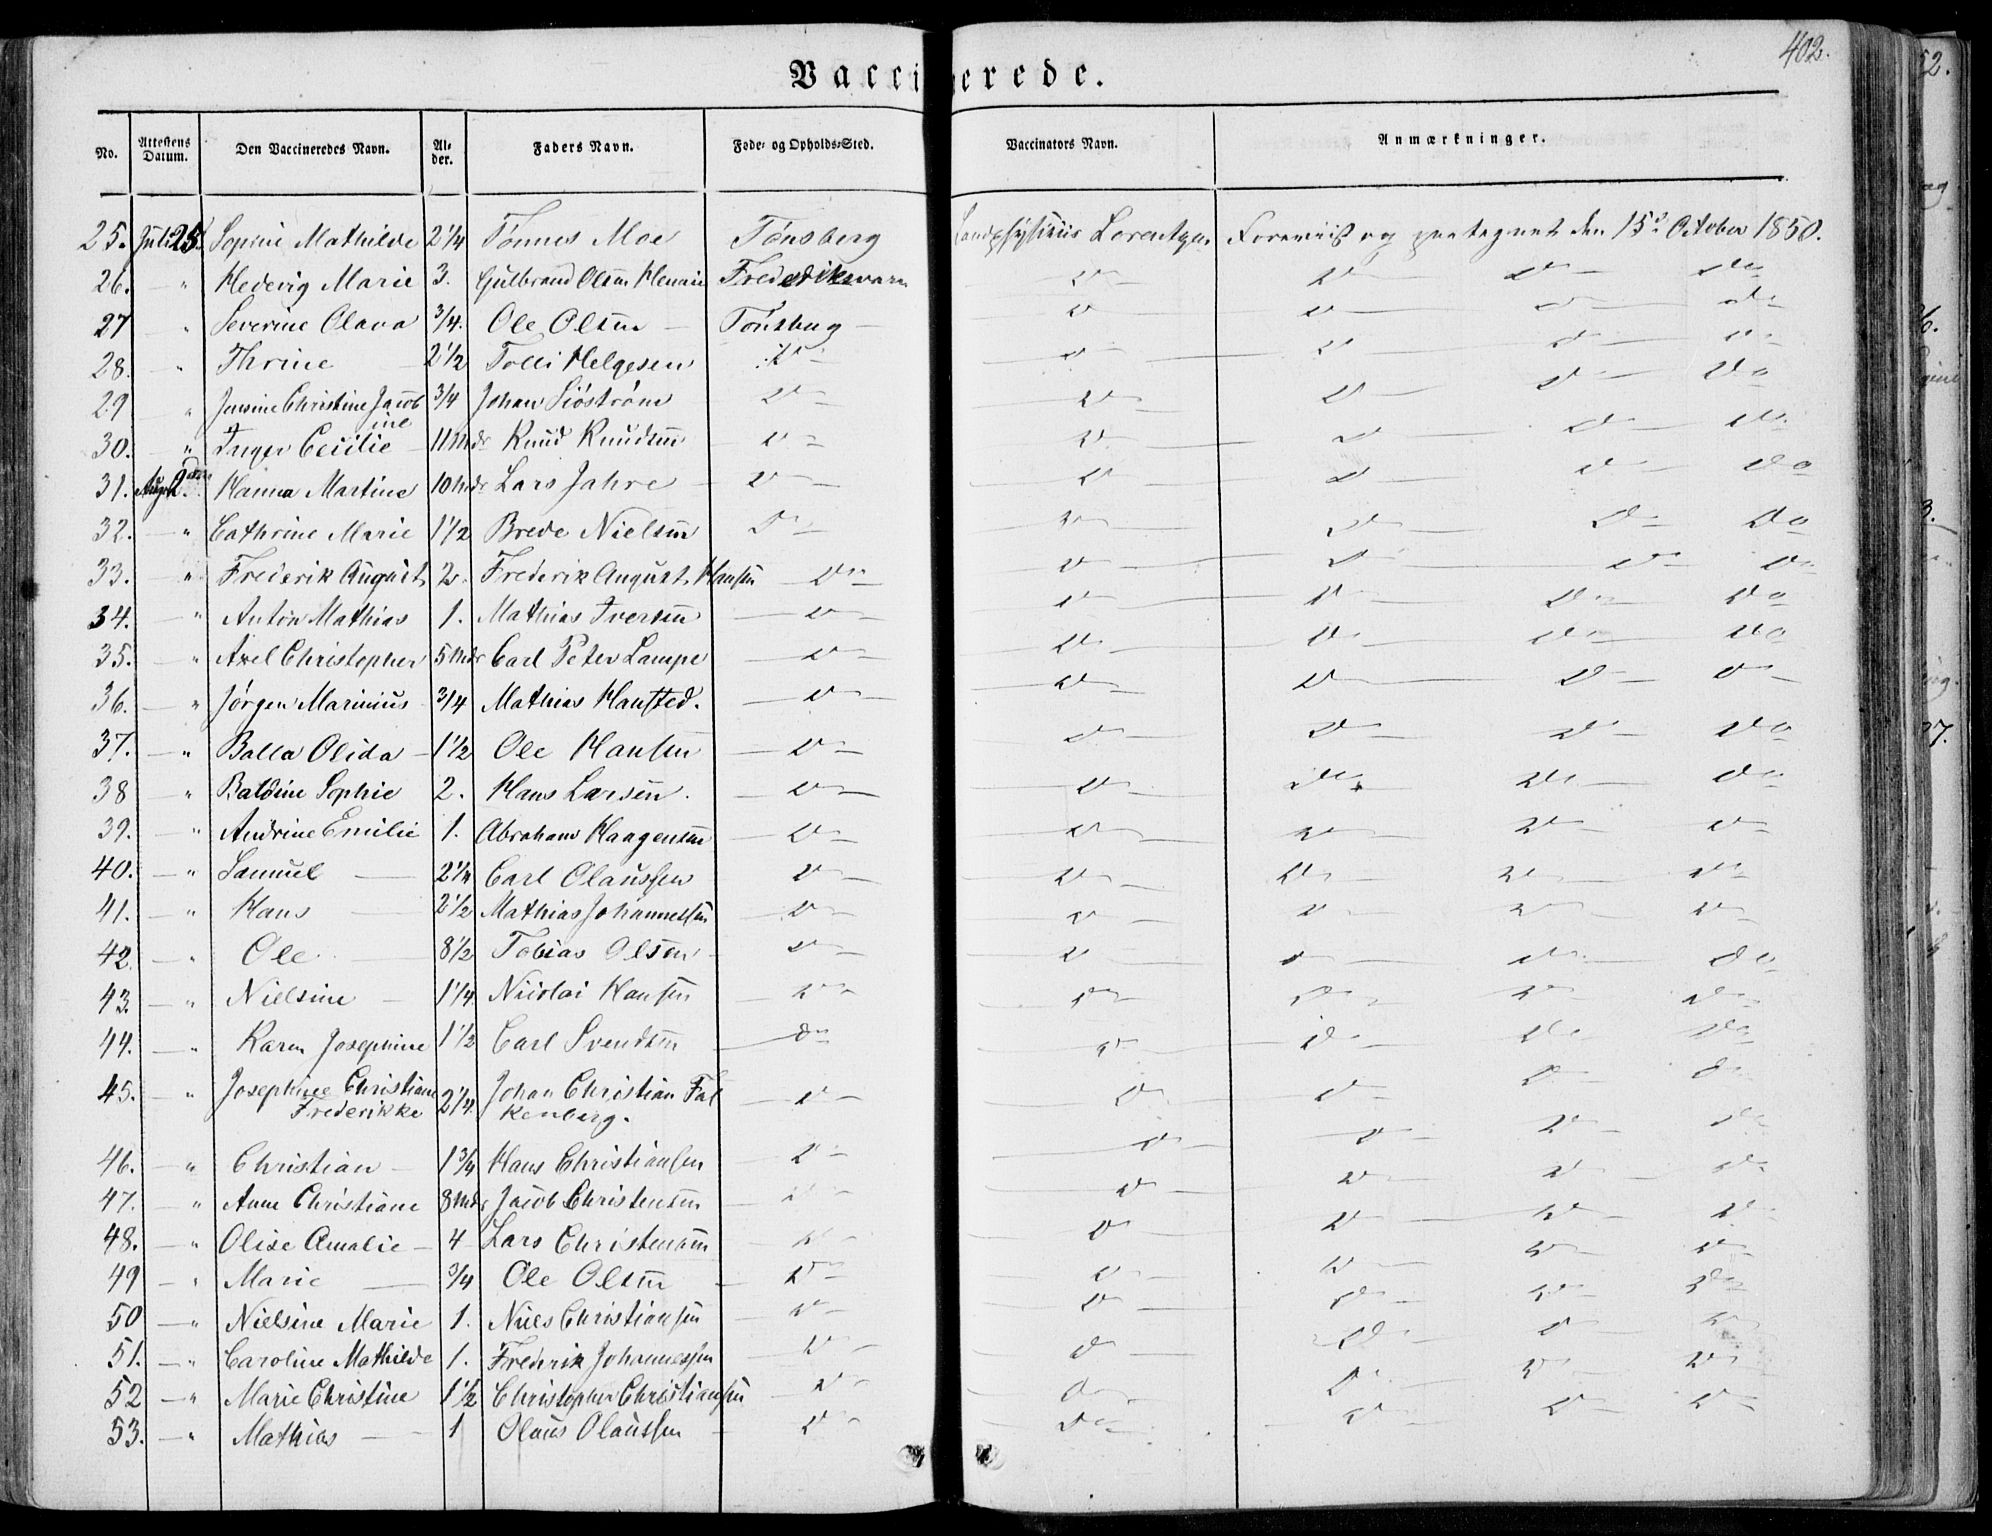 402.
Vaccinerede.
No. | Attestens Datum. | Den Vaccineredes Navn. | Al-der. | Faders Navn. | Føde- og Opholds-Sted. | Vaccinators Navn. | Anmærkninger.
25. Juli 25. Sophie Mathilde 2 1/4 Tønnes Moe Tønsberg Landphysicus Lorentzen Foreviist og paategnet den 15de October 1850.
26. — " Hedevig Marie 3. Gulbrand Olsen Fredriksværn Do Do Do Do
27 " Severine Olava 3/4. Ole Olsen — Tønsberg — Do Do Do Do
28. " Thrine 2 1/2 Tolli Helgesen Do Do Do Do Do
29 " Jensine Christine Jacob 3/4 Johan Siöström Do Do Do Do Do
ine
30. " Inger Cecilie 11 Mdr Knud Knudsen Do Do Do Do Do
31. August 2den Hanna Martine 10 Mdr Lars Jahre Do Do Do Do Do
32. — " Cathrine Marie 1 1/2 Brede Nielsen Do Do Do Do Do
33. " Frederik August 2. Frederik August Hansen Do Do Do Do Do
34. " Anton Mathias 1. Mathias Iversen Do Do Do Do Do
35. " Axel Christopher 5 Mdr Carl Peter Lampe Do Do Do Do Do
36. — " Jørgen Marinius 3/4 Mathias Hansted. Do Do Do Do Do
37. — " Balla Olida 1 1/2 Ole Hansen Do Do Do Do Do
38 — " Baldine Sophie 2. Hans Larsen. Do Do Do Do Do
39. — " Andrine Emilie 1. Abraham Haagensen Do Do Do Do Do
40. — " Samuel 2 1/4 Carl Olaussen Do Do Do Do Do
41. — " Hans 2 1/2 Mathias Johannessen Do Do Do Do Do
42. — " Ole 8 1/2 Tobias Olsen Do Do Do Do Do
43. — " Nielsine 1 1/4. Nicolai Hansen Do Do Do Do Do
44. — " Karen Josephine 1 1/2 Carl Svendsen Do Do Do Do Do
45. — " Josephine Christiane 2 1/4. Johan Christian Fal Do Do Do Do Do
Frederikke kenberg.
46. — " Christian 1 3/4 Hans Christiansen Do Do Do Do Do
47. — " Anne Christiane 8 Mdr Jacob Christensen Do Do Do Do Do
48. — " Olise Amalie 4 Lars Christensen Do Do Do Do Do
49 — " Marie 3/4 Ole Olsen Do Do Do Do Do
50 — " Nielsine Marie 1. Niels Christiansen Do Do Do Do Do
51. — " Caroline Mathilde 1. Frederik Johannessen Do Do Do Do Do
52 — " Marie Christine 1 1/2 Christopher Christiansen Do Do Do Do Do
53. — " Mathias 1 Olaus Olaussen Do Do Do Do Do